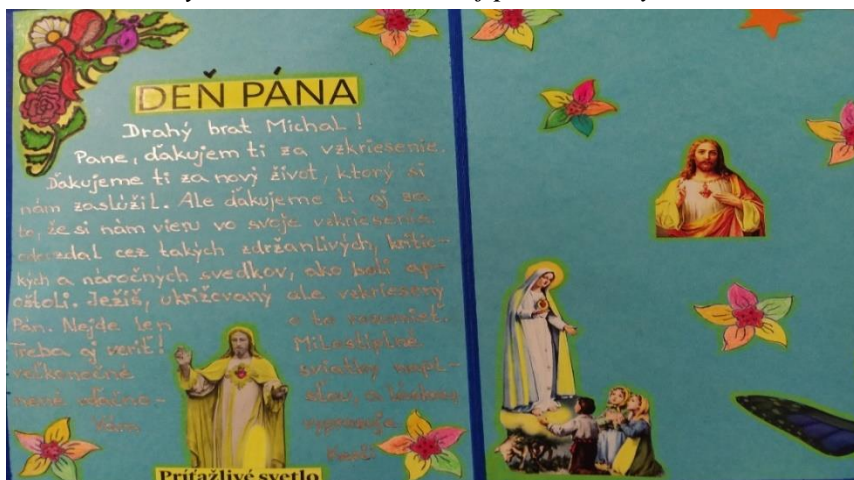 DEŇ PÁNA
Drahý brat Michal !
Pane, ďakujem ti za vzkriesenie.
Ďakujeme ti za nový život, ktorý si
nám zaslúžil. Ale ďakujeme ti aj za
to, že si nám vieru vo svoje vzkriesenie
odovzdal cez takých zdržanlivých, kritic-
kých a náročných svedkov, ako boli ap-
oštoli. Ježiš, ukrižovaný ale vzkriesený
Pán. Nejde len o to rozumieť.
Treba aj veriť! Milostiplné
veľkonočné sviatky napl-
nené vďačno- a láskou
Vám vyprosuje
Príťažlivé svetlo